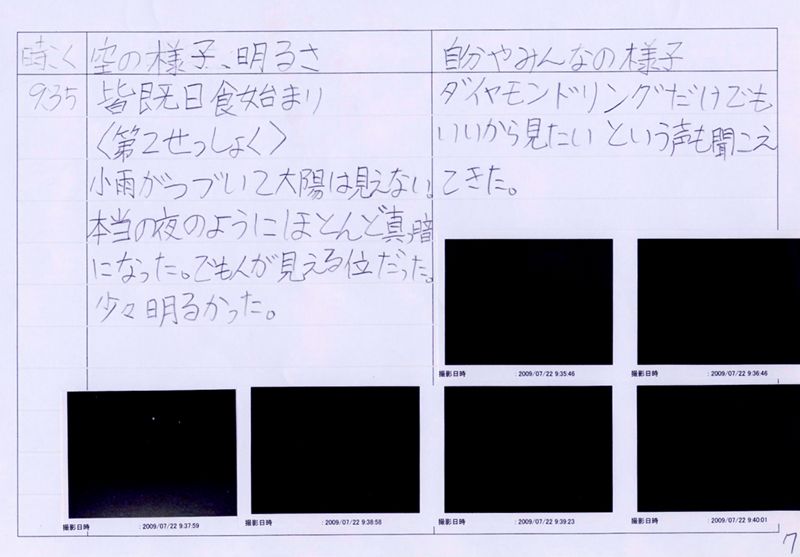 時こく 空の様子、明るさ 自分やみんなの様子
9:35 皆既日食始まり
〈第2せっしょく〉
小雨がつづいて太陽は見えない。
本当の夜のようにほとんど真暗
になった。でも人が見える位だった。
少々明るかった。
ダイヤモンドリングだけでも
いいから見たいという声も聞こえ
てきた。
撮影日時 : 2009/07/22 9:35:46
撮影日時 : 2009/07/22 9:36:46
撮影日時 : 2009/07/22 9:37:59
撮影日時 : 2009/07/22 9:38:58
撮影日時 : 2009/07/22 9:39:23
撮影日時 : 2009/07/22 9:40:01
7